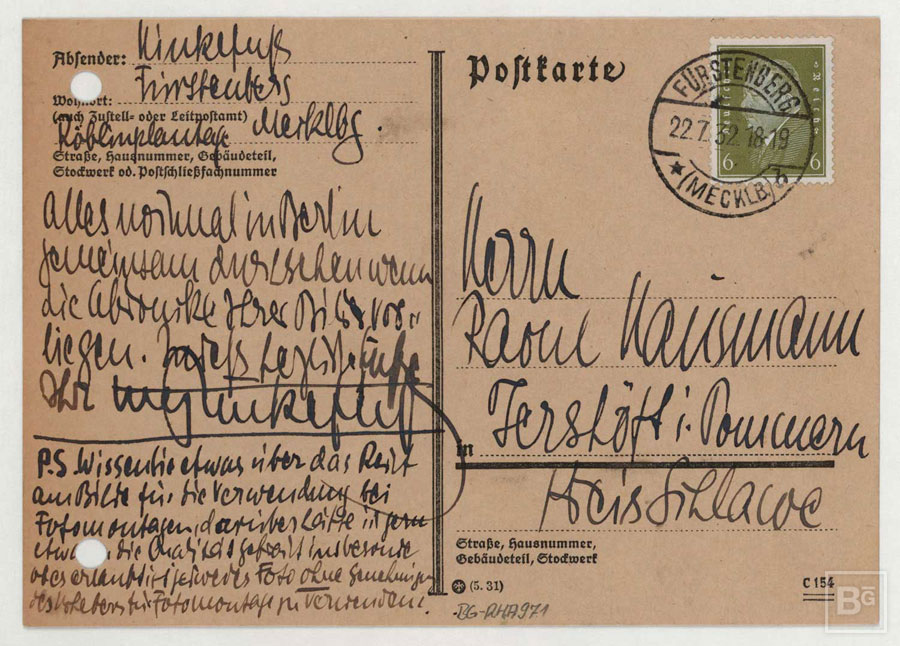 Absender: Kinkefuß
Fürstenberg
Wohnort:
(auch Zustell- oder Leitpostamt)
Röblinplantage Mecklbg.
Straße, Hausnummer, Gebäudeteil,
Stockwerk od. Postschließfachnummer
alles normal in Berlin
gemeinsam durchsehen wenn
die Abdrucke Ihrer Bilder vor-
liegen.
Ihr
P.S. Wissen Sie etwas über das Recht
am Bilde für die Verwendung bei
Fotomontagen, darüber hätte ich gern
etwas, die
ob es erlaubt ist jedwedes Foto ohne Genehmigung
des Urhebers für Fotomontage zu verwenden.
Postkarte
FÜRSTENBERG
22.7.32.18-19
(MECKLB.) b
Deutsches Reich
6 6
Herrn
Raoul Hausmann
in Jershöft i. Pommern
Kreis Schlawe
Straße, Hausnummer,
Gebäudeteil, Stockwerk
(5. 31)
C 154
BG-RHA971
BG